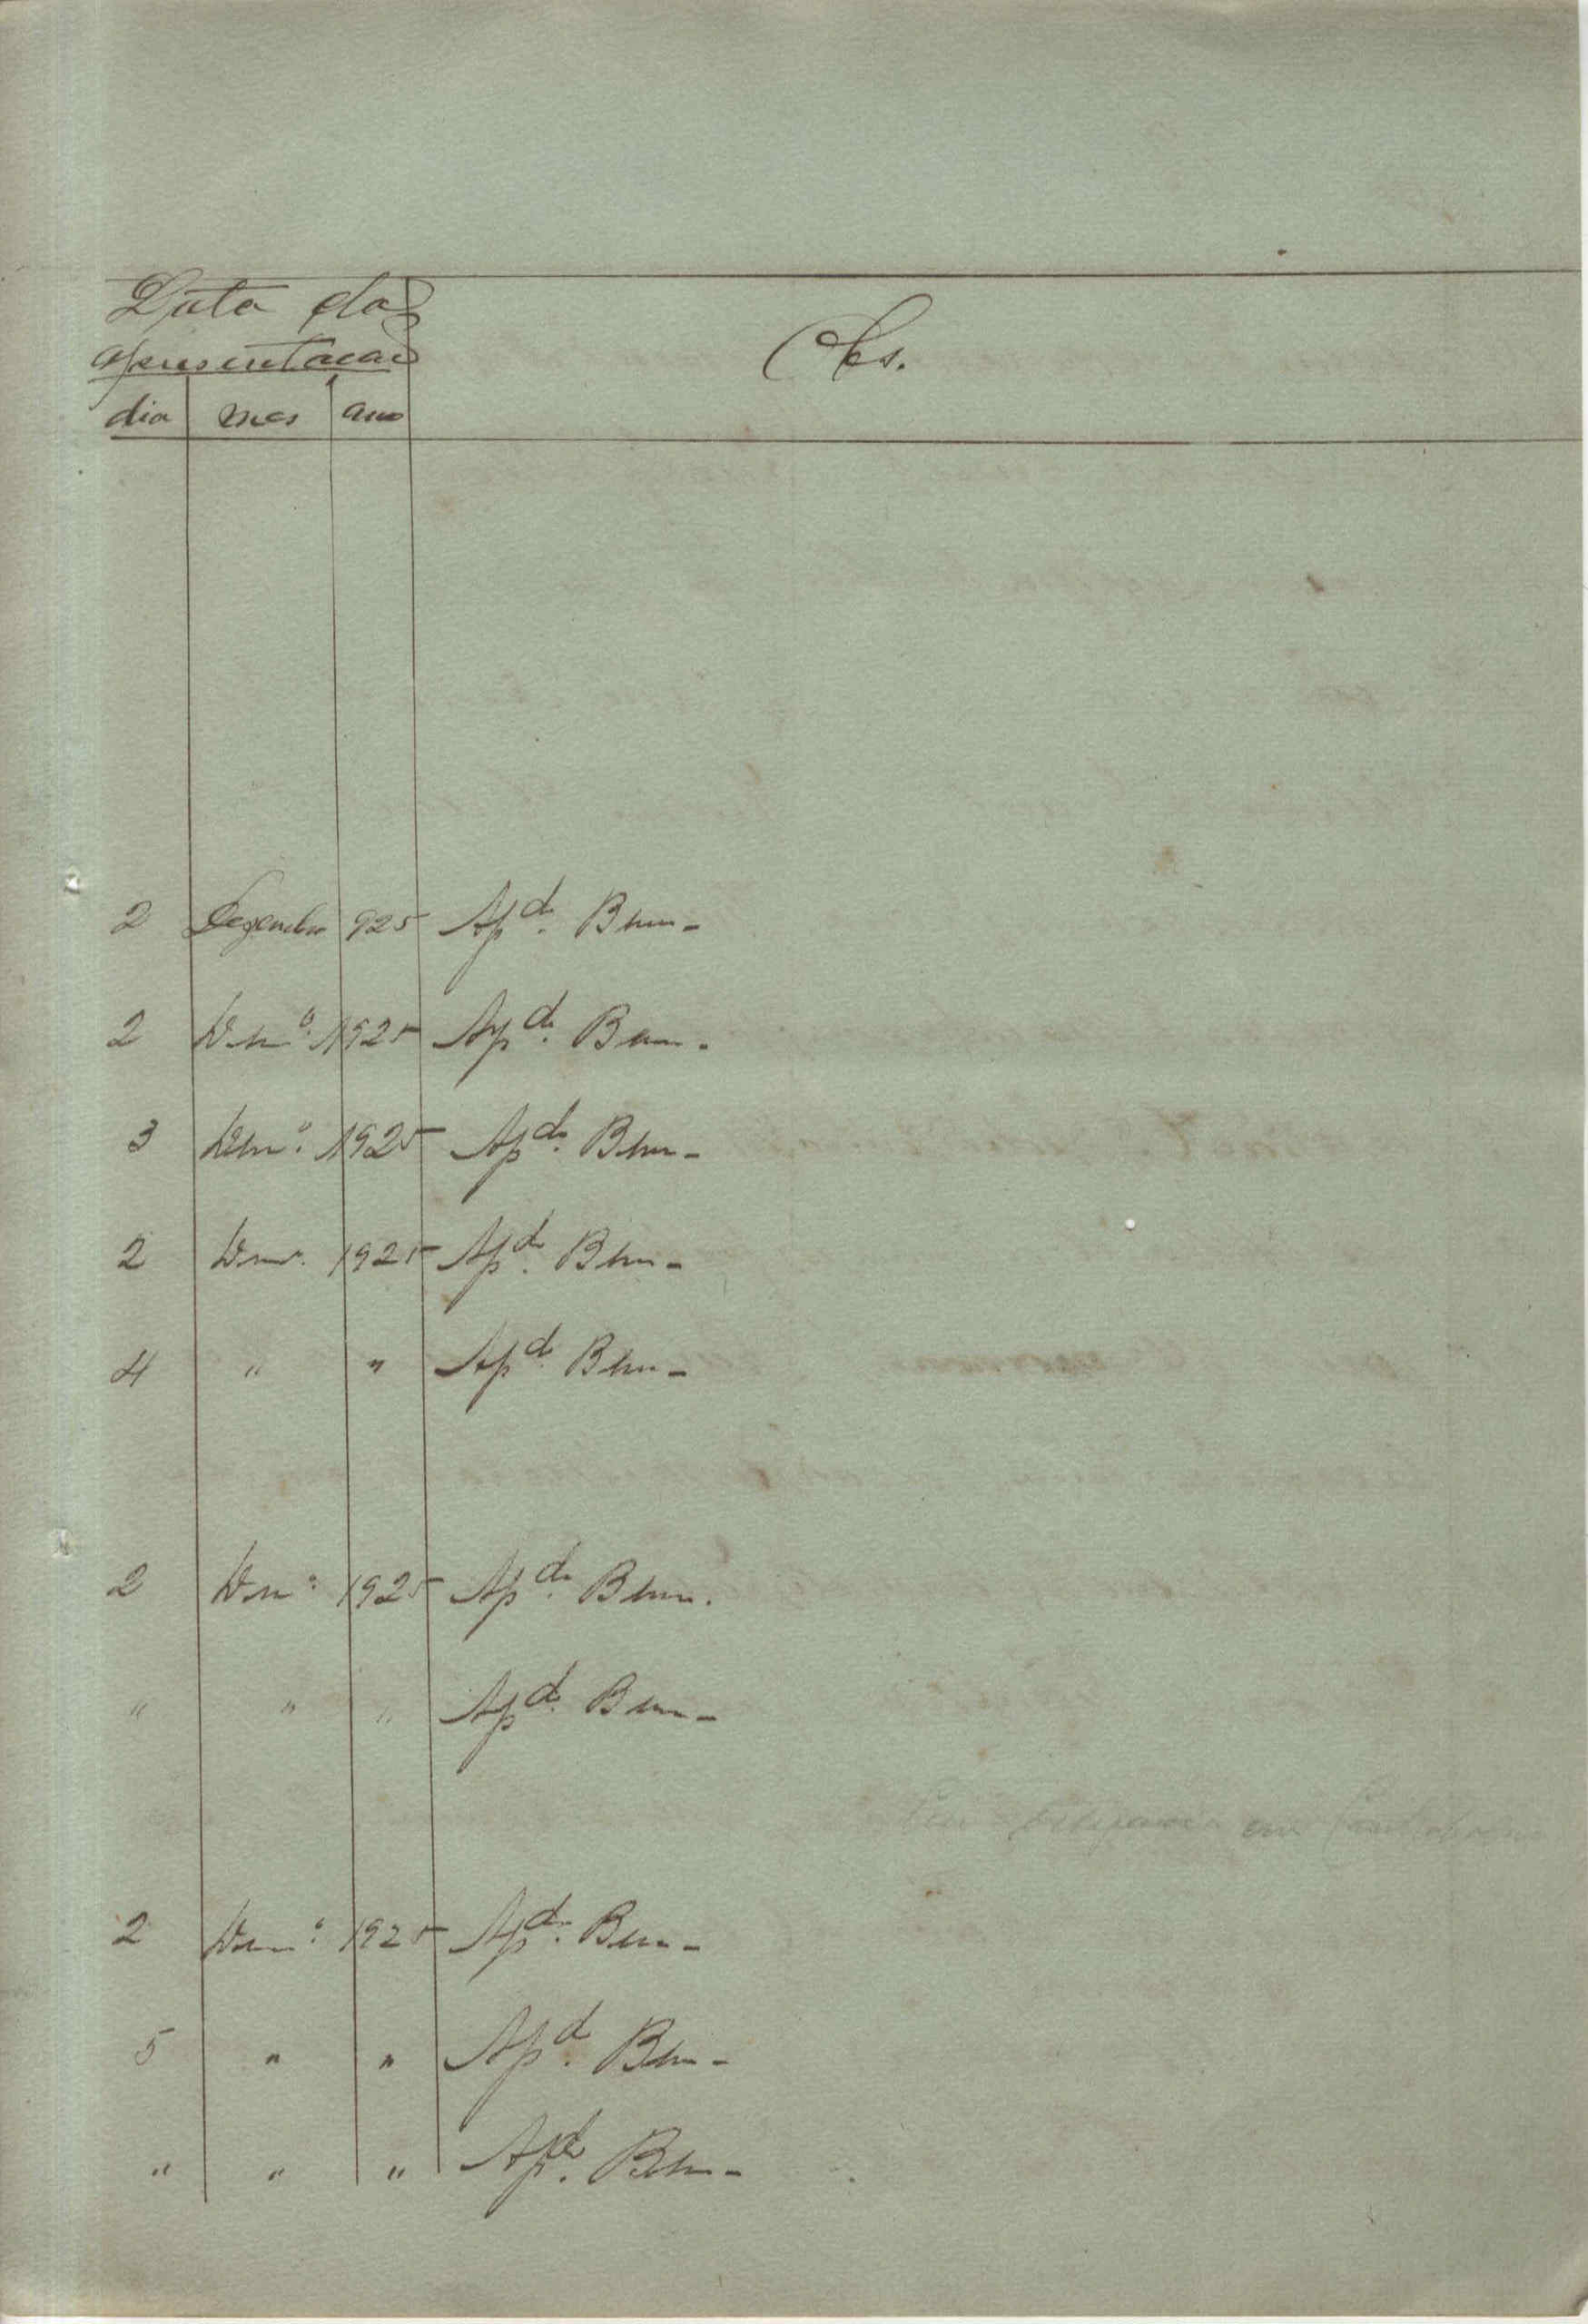 Data da
apresentacao
Obs.
dia mes ano
2 Dezembro 925 Apdo. Bem -
2 Dezmo. 1925 Apdo. Bem -
3 Dezmo. 1925 Apdo. Bem -
2 Dezmo. 1925 Apdo. Bem -
4 " " Apdo. Bem -
2 Dezmo. 1925 Apdo. Bem.
" " " Apdo. Bem -
em
2 Dezmo. 1925 Apdo. Bem -
5 " " Apdo. Bem -
" " " Apdo. Bem -